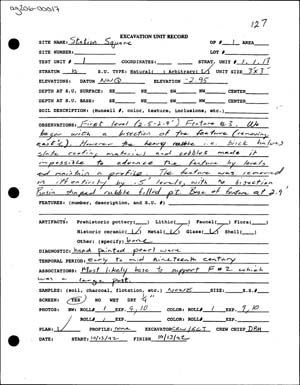 ag206-00017
127
EXCAVATION UNIT RECORD
SITE NAME: Station Square OP # 1 AREA
SITE NUMBER: LOT #
TEST UNIT # 1 COORDINATES: STRAT. 1, 1, 13
STRATUM S.U. TYPE: Natural: Arbitrary: UNIT SIZE 3x3'
ELEVATIONS: DATUM NWQ -2.95
DEPTH AT S.U. SURFACE: NW NE SW SE CENTER
DEPTH AT S.U. BASE: NW NE SW SE CENTER
SOIL DESCRIPTION: (Munsell #, color, texture, inclusions, etc.)
OBSERVATIONS: First level (2.5-2.9') Feature #3.
began with a bisection of the feature (removing
east ½). However the heavy rubble i.e. brick halves
slate roofing material and cobbles made it
impossible to advance the feature by levels
and maintain a profile. The feature was removed
in its entirety by .5' levels, with no bisection
Basin shaped rubble filled pit. Base of feature at 2.9'
FEATURES: (number, description, and S.U. #)
ARTIFACTS: Prehistoric pottery( ) Lithic( ) Faunal( ) Flora( )
Historic ceramic(✓) Metal(✓) Glass(✓) Shell( )
Other: (specify) bone
DIAGNOSTIC: hand painted pearl ware
TEMPORAL PERIOD: early to mid nineteenth century
ASSOCIATIONS: Most likely base to support F #2 which
was a large post.
SAMPLES: (soil, charcoal, flotation, etc.) NONE SIZE: S.S.#
SCREEN: YES NO WET DRY ¼"
PHOTOS: BW: ROLL# 1 EXP. 9,10 COLOR: ROLL# 1 EXP. 9,10
COLOR: ROLL# EXP. COLOR: ROLL# EXP.
PLAN: PROFILE: none EXCAVATOR CREW CHIEF DRH
DATE: START 10/13/92 FINISH 10/13/92